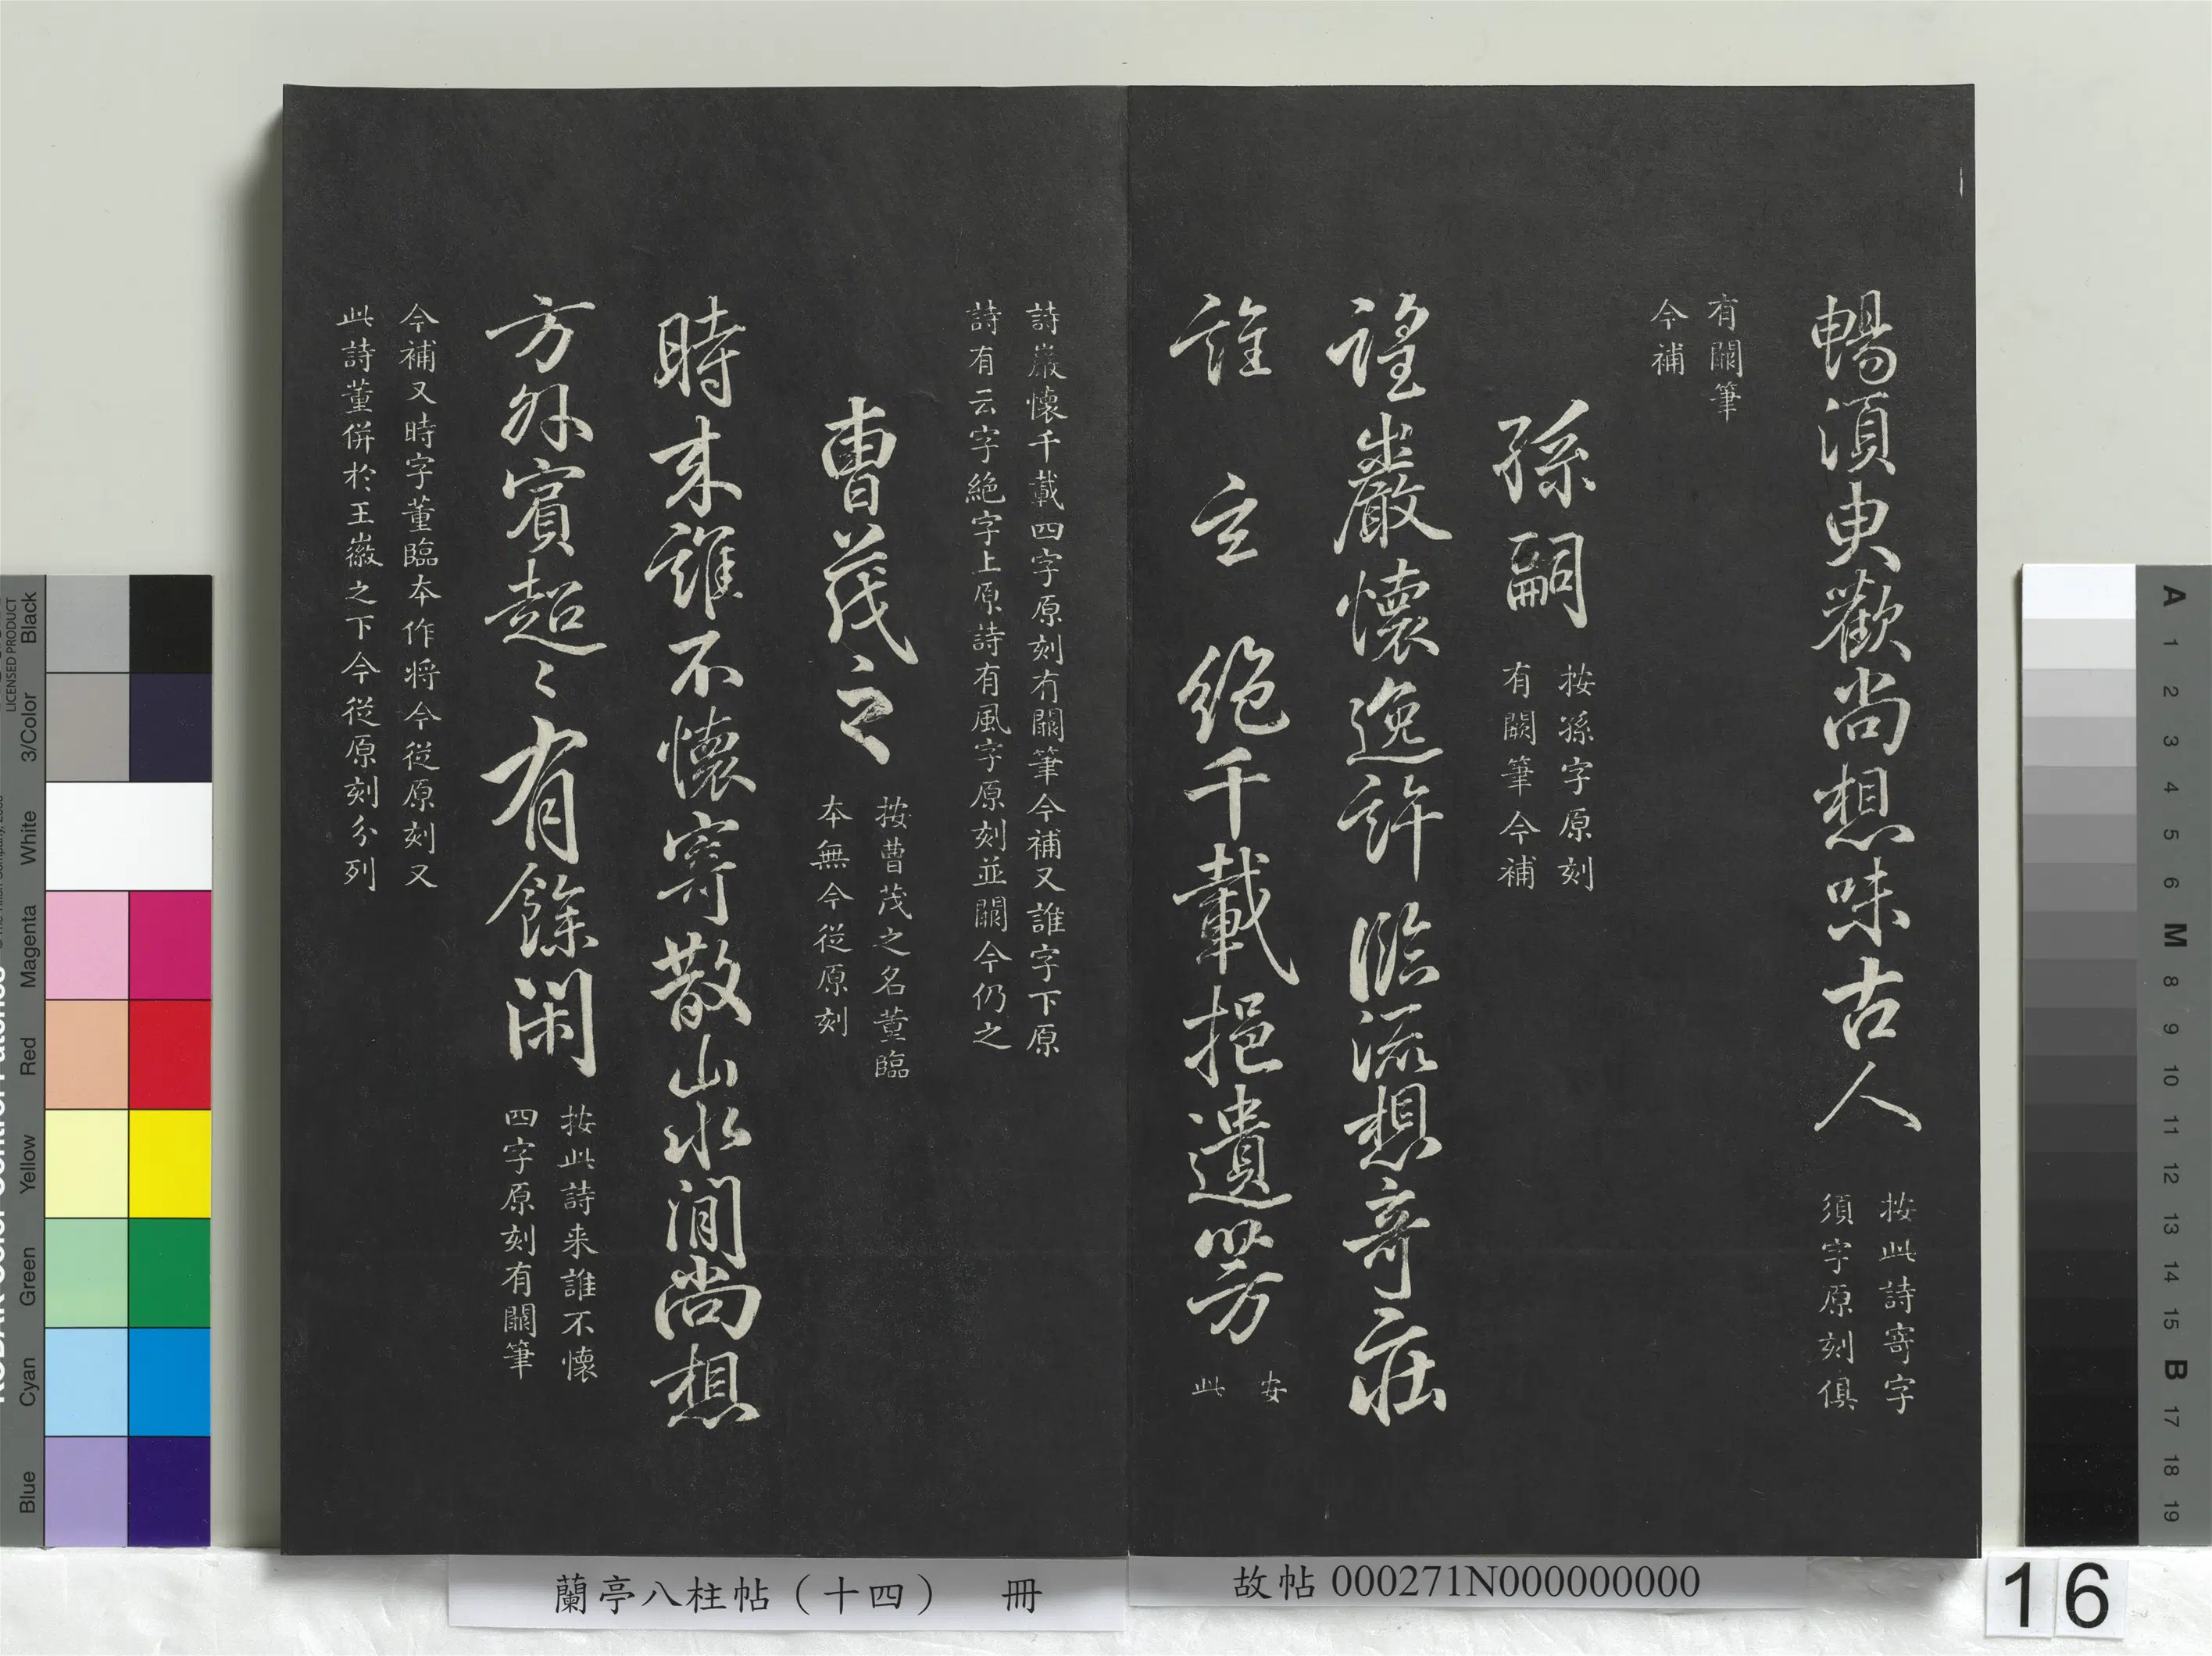 暢須臾歡尚想味古人
按此詩寄字
須字原刻俱
有闕筆
今補
孫嗣
按孫字原刻
有闕筆今補
望巖懷逸許臨流想奇莊
誰 云 絕千載挹遺芳
按
此
詩巖懷千載四字原刻有闕筆今補又誰字下原
詩有云字絕字上原詩有風字原刻並闕今仍之
曹茂之
按曹茂之名董臨
本無今從原刻
時来誰不懷寄散山水間尚想
方外賓超〻有餘閑
按此詩来誰不懷
四字原刻有闕筆
今補又時字董臨本作将今從原刻又
此詩董併於王徽之下今從原刻分列
蘭亭八柱帖（十四） 冊
故帖 000271N000000000
16
LICENSED PRODUCT
Black
3/Color
White
Magenta
Red
Yellow
Green
Cyan
Blue
A
1
2
3
4
5
6
M
8
9
10
11
12
13
14
15
B
17
18
19